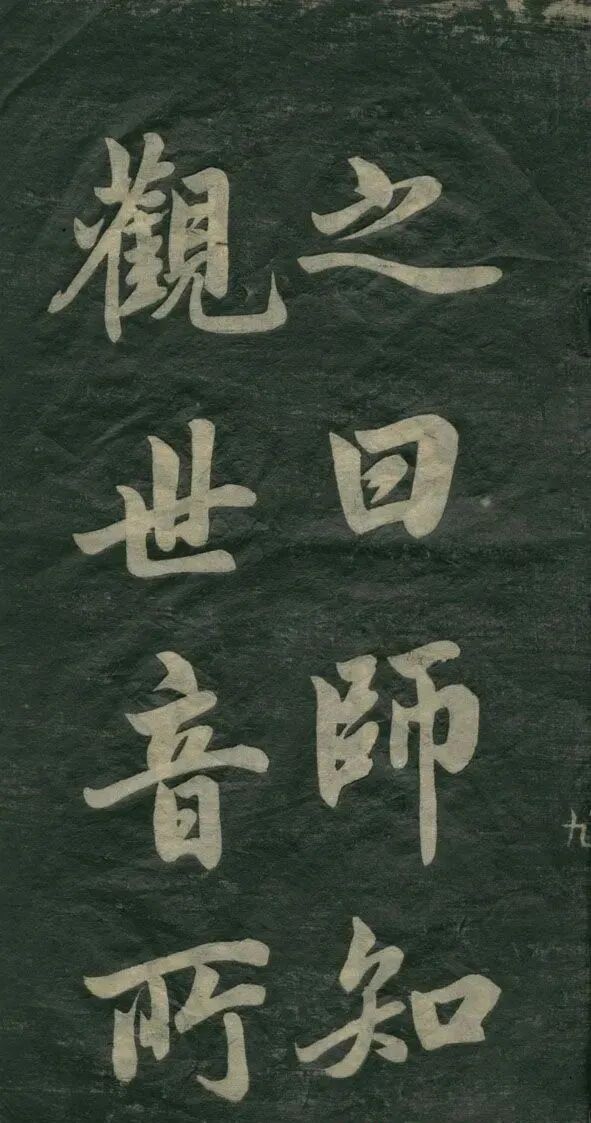 之曰師知
觀世音所
九